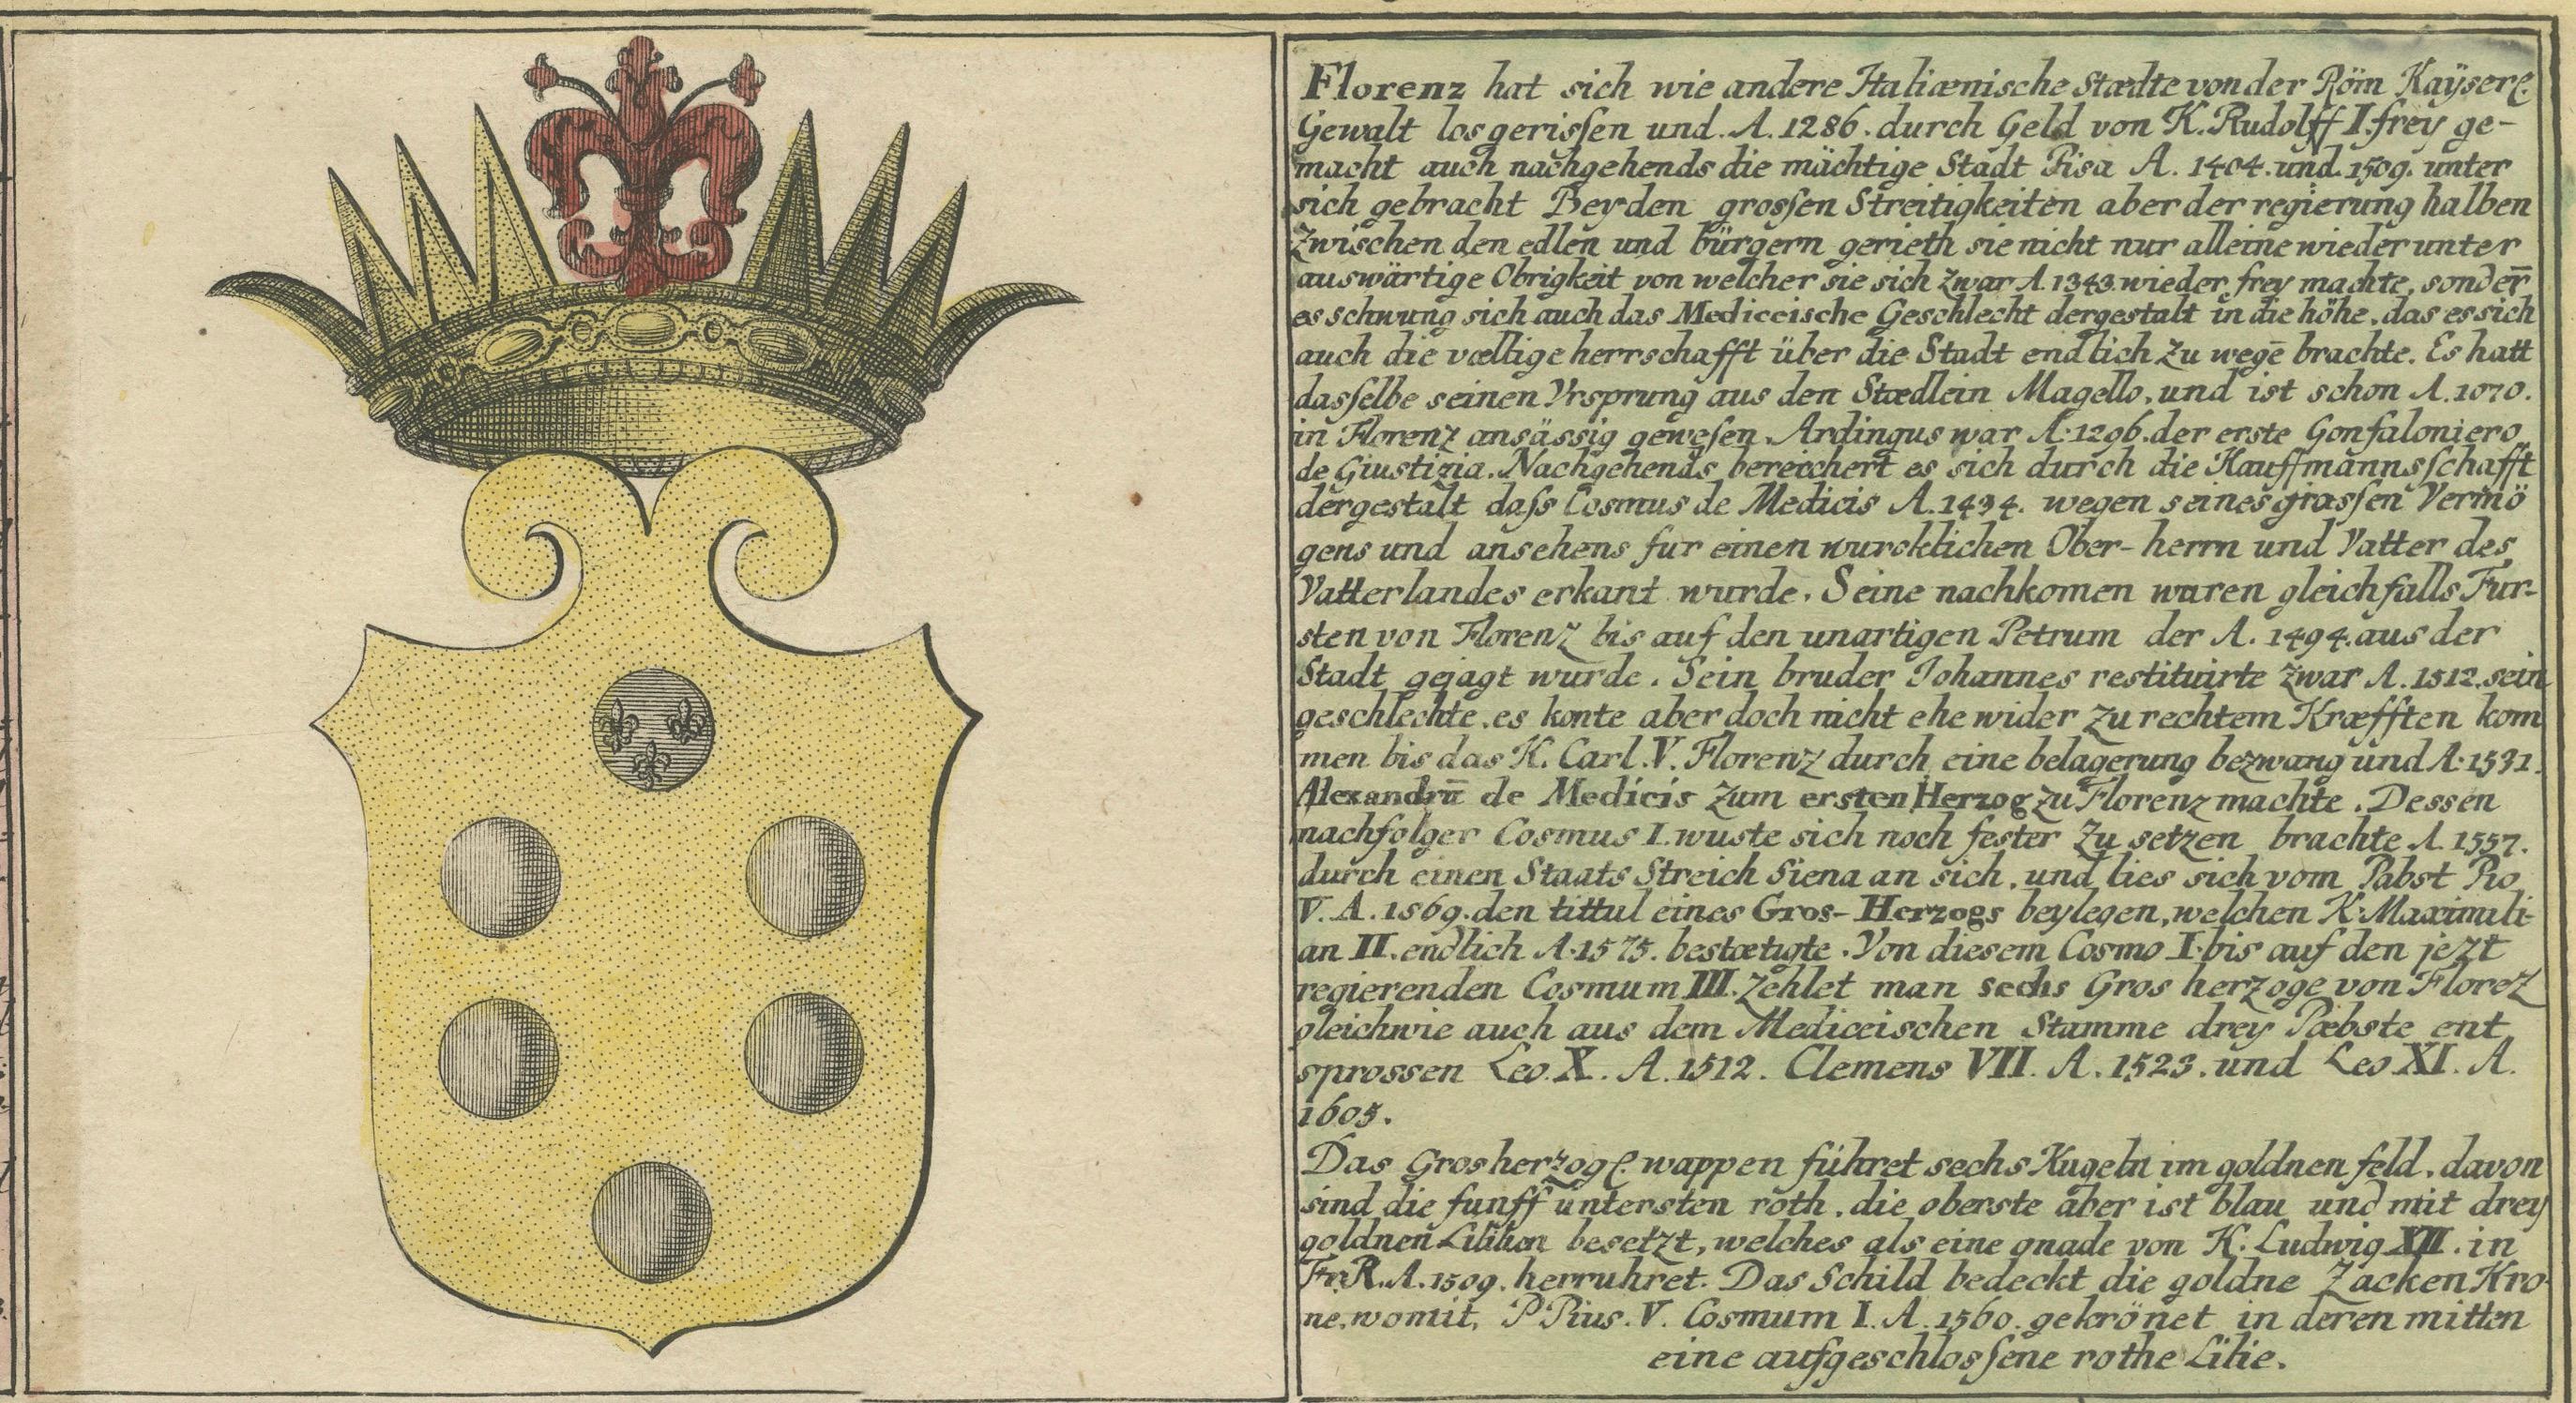 Florenz hat sich wie andere Italiænische Stædte von der Röm Kaÿserl.
Gewalt losgerissen und. A. 1286. durch Geld von K. Rudolff I. frey ge-
macht auch nachgehends die mächtige Stadt Pisa A. 1404. und. 1509. unter
sich gebracht Bey den grossen Streitigkeiten aber der regierung halben
zwischen den edlen und bürgern gerieth sie nicht nur alleine wieder unter
auswärtige Obrigkeit von welcher sie sich zwar A. 1343. wieder frey machte, sonder̄
es schwung sich auch das Mediceische Geschlecht dergestalt in die höhe, das es sich
auch die vœllige herrschafft über die Stadt endlich zu wegē brachte. Es hatt
dasselbe seinen Vrsprung aus den Stædlein Magello, und ist schon A. 1070.
in Florenz ansässig gewesen. Ardingus war A. 1296. der erste Gonfaloniero
de Giustizia. Nachgehends bereichert es sich durch die Kauffmannsschafft
dergestalt dass Cosmus de Medicis A. 1434. wegen seines grossen Vermö
gens und ansehens fur einen wurcklichen Ober-herrn und Vatter des
Vatterlandes erkant wurde. Seine nachkomen waren gleichfalls Fur-
sten von Florenz bis auf den unartigen Petrum der A. 1494. aus der
Stadt gejagt wurde. Sein bruder Johannes restituirte zwar A. 1512. sein
geschlechte. es konte aber doch nicht ehe wider zu rechtem Kræfften kom
men bis das K. Carl. V. Florenz durch eine belagerung bezwang und A. 1531.
Alexandrū de Medicis zum ersten Herzog zu Florenz machte. Dessen
nachfolger Cosmus I. wuste sich noch fester zu setzen brachte A. 1557.
durch einen Staats Streich Siena an sich, und lies sich vom Pabst Pio
V. A. 1569. den tittul eines Gros-Herzogs beylegen, welchen K. Maximili-
an II. endlich A. 1575. bestœtigte. Von diesem Cosmo I. bis auf den jezt
regierenden Cosmum III. zehlet man sechs Gros herzoge von Florēz
gleichwie auch aus dem Mediceischen Stamme drey Pæbste ent
sprossen Leo. X. A. 1512. Clemens VII. A. 1523. und Leo XI. A.
1605.
Das Grosherzogl. wappen führet sechs Kugeln im goldnen feld, davon
sind die funff untersten roth, die oberste aber ist blau und mit drey
goldnen Lilien besetzt, welches als eine gnade von K. Ludwig XII. in
Fr. R. A. 1509. herruhret. Das Schild bedeckt die goldne Zacken Kro-
ne, womit, P Pius. V. Cosmum I. A. 1560. gekrönet in deren mitten
eine aufgeschlossene rothe Lilie.